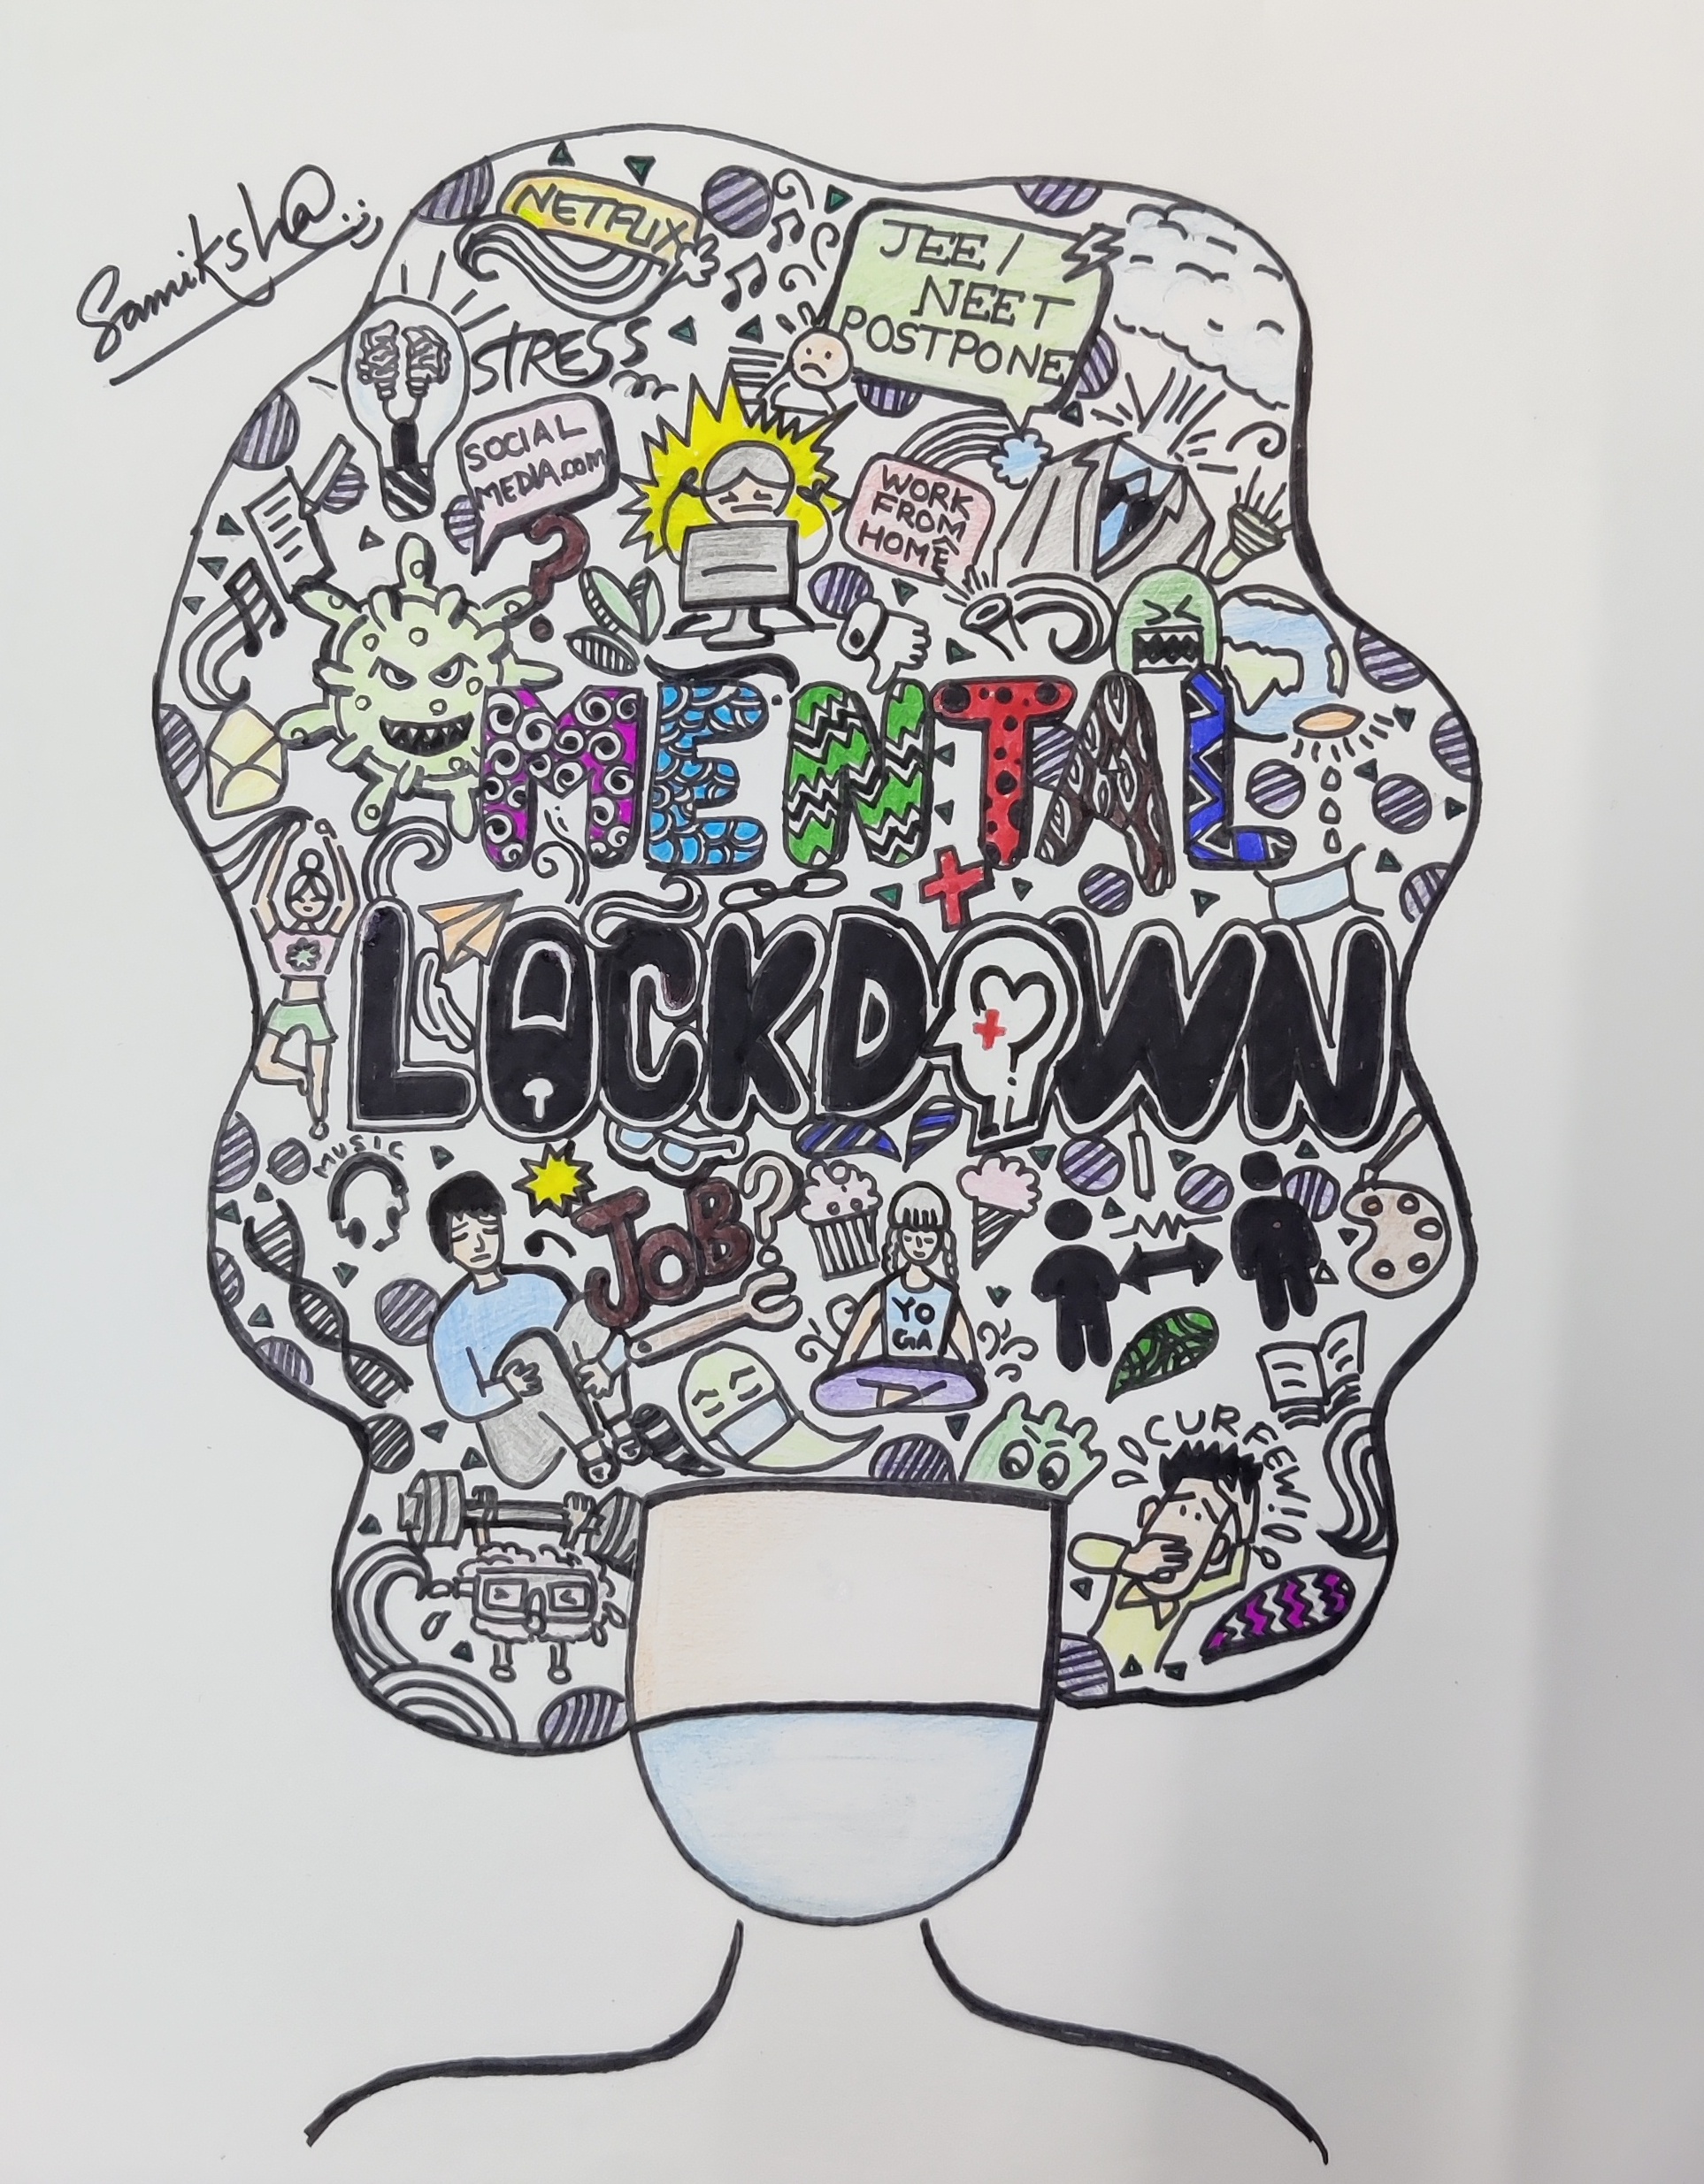 Samiksh@
NETFLIX
JEE /
NEET
POSTPONE
STRESS
SOCIAL
MEDIA.com
WORK
FROM
HOME
?
MENTAL
LOCKDOWN
MUSIC
JOB?
YO
GA
CURFEW!!